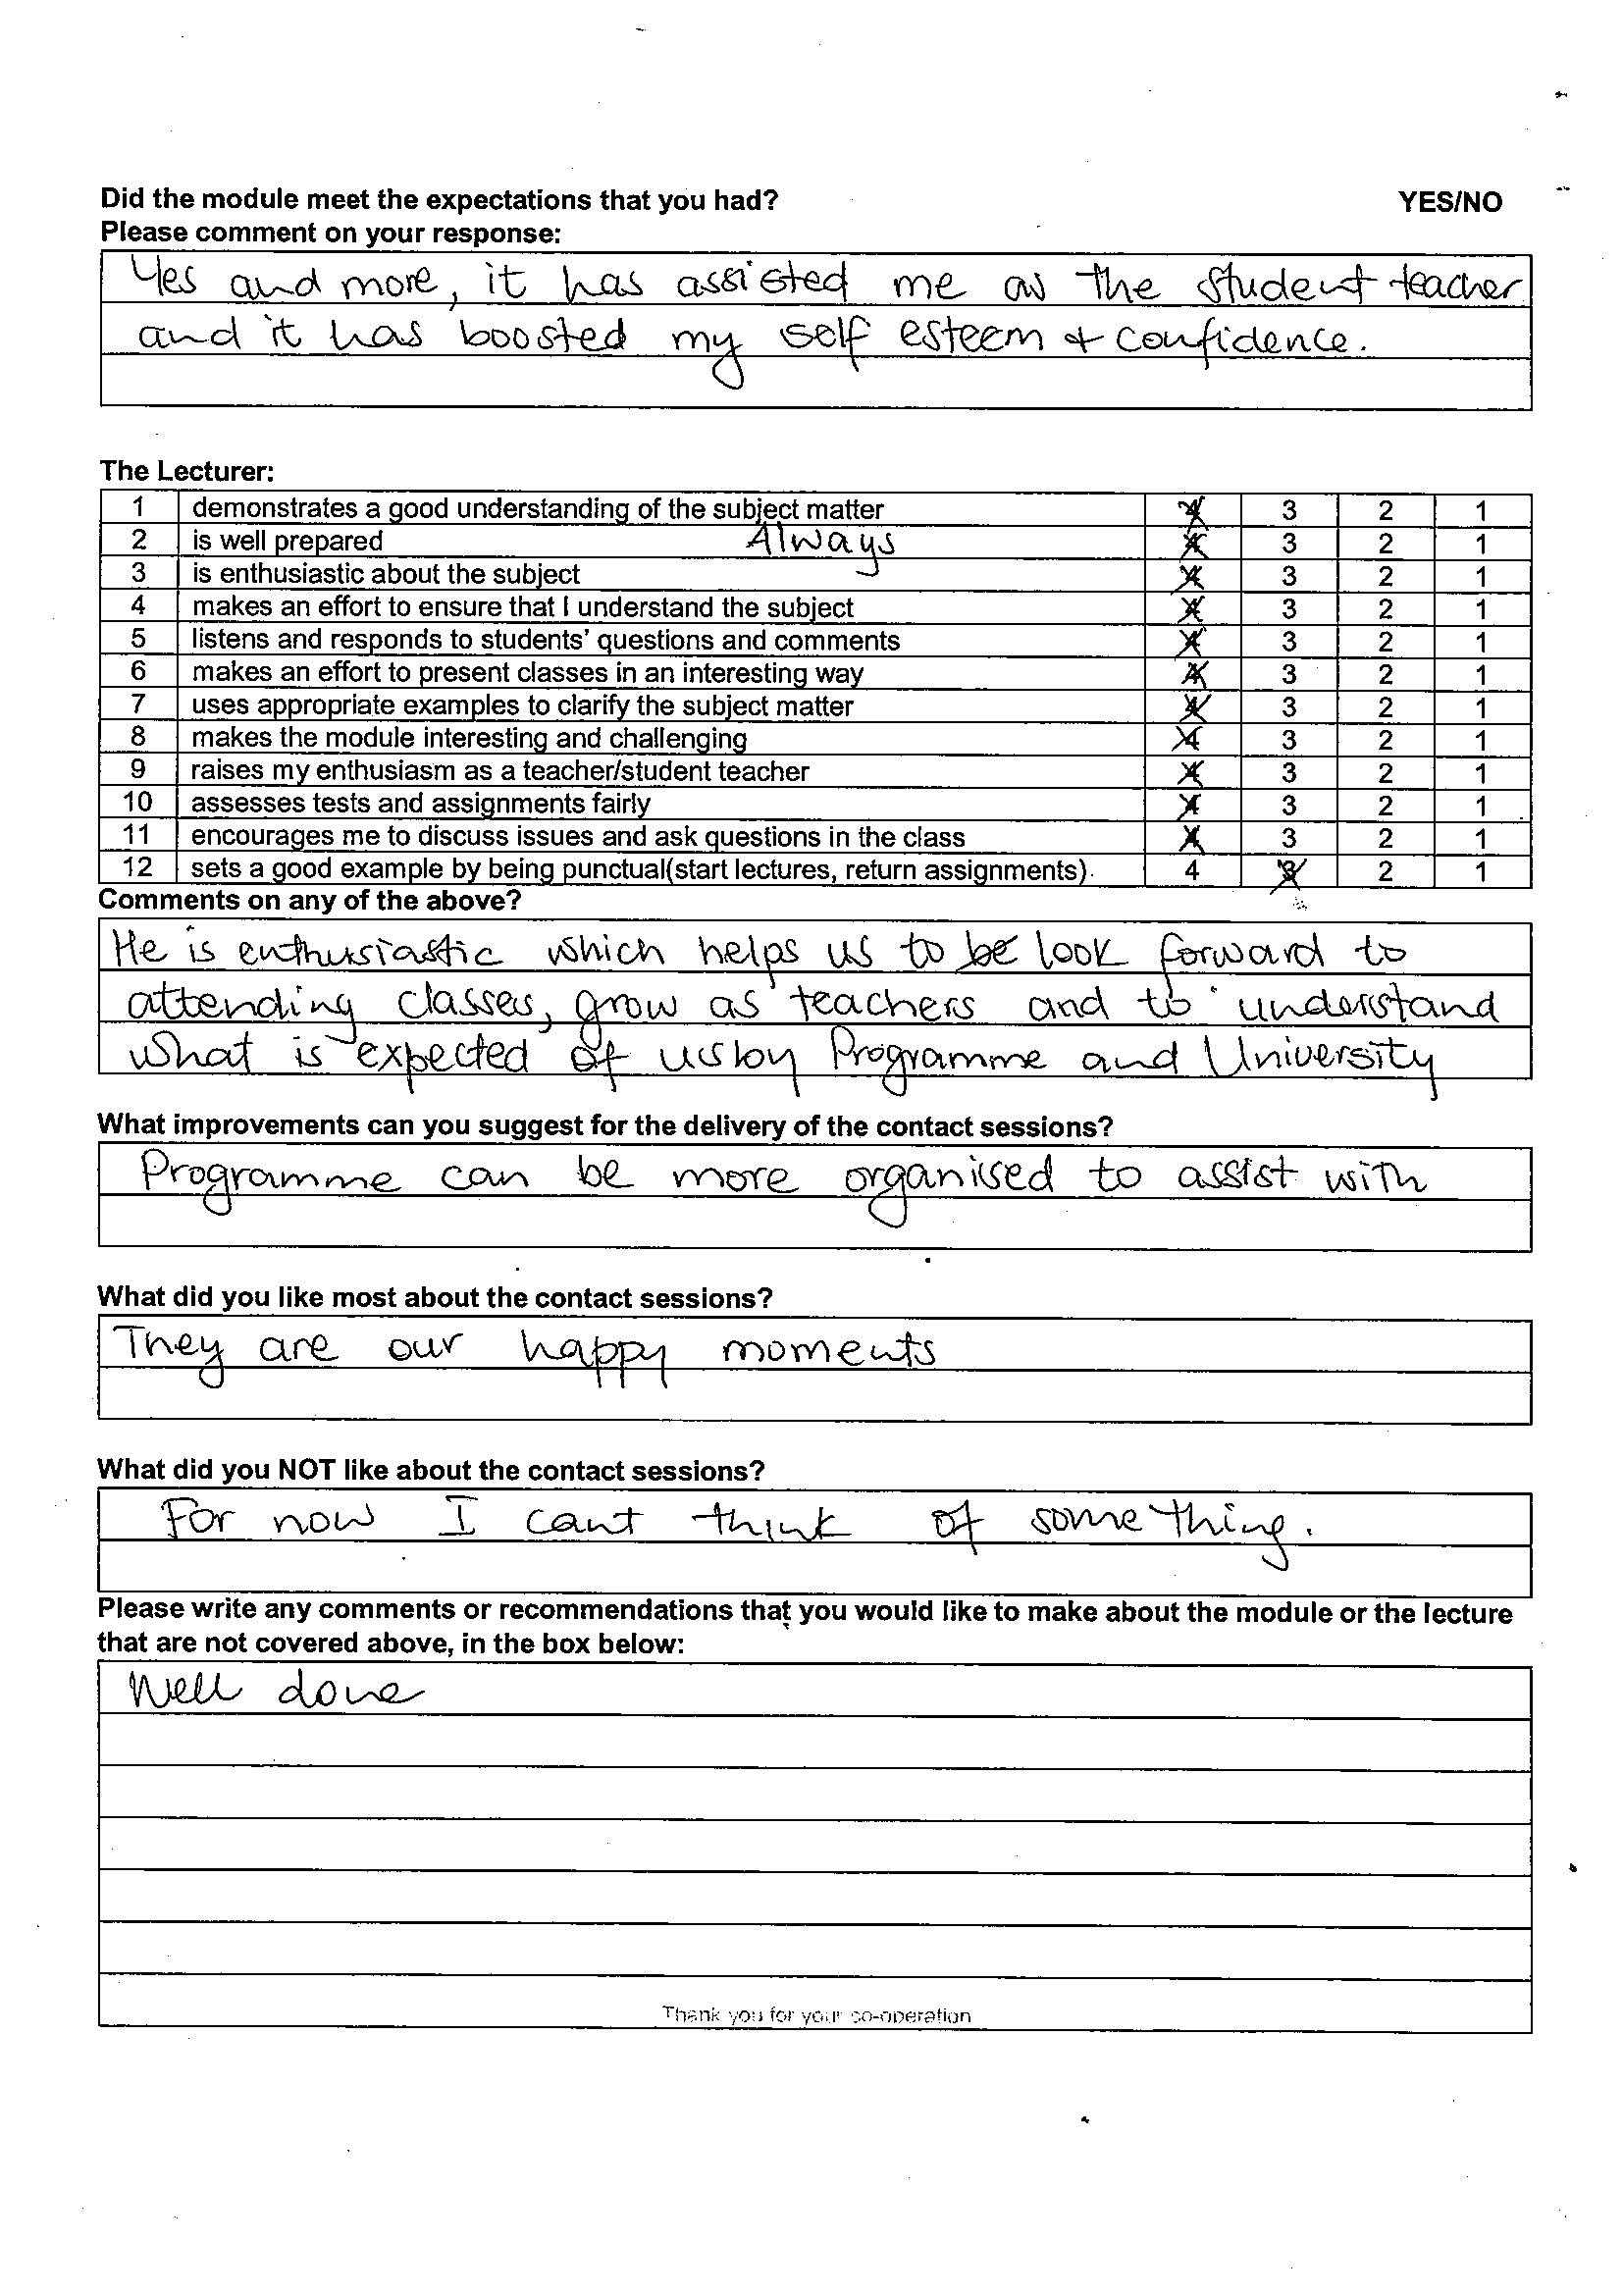 Did the module meet the expectations that you had? YES/NO
Please comment on your response:
Yes and more, it has assisted me as the student teacher
and it has boosted my self esteem & confidence.
The Lecturer:
1 demonstrates a good understanding of the subject matter 4 3 2 1
2 is well prepared Always 4 3 2 1
3 is enthusiastic about the subject 4 3 2 1
4 makes an effort to ensure that I understand the subject 4 3 2 1
5 listens and responds to students' questions and comments 4 3 2 1
6 makes an effort to present classes in an interesting way 4 3 2 1
7 uses appropriate examples to clarify the subject matter 4 3 2 1
8 makes the module interesting and challenging 4 3 2 1
9 raises my enthusiasm as a teacher/student teacher 4 3 2 1
10 assesses tests and assignments fairly 4 3 2 1
11 encourages me to discuss issues and ask questions in the class 4 3 2 1
12 sets a good example by being punctual(start lectures, return assignments). 4 3 2 1
Comments on any of the above?
He is enthusiastic which helps us to be look forward to
attending classes, grow as teachers and to understand
what is expected of us by Programme and University
What improvements can you suggest for the delivery of the contact sessions?
Programme can be more organised to assist with
What did you like most about the contact sessions?
They are our happy moments
What did you NOT like about the contact sessions?
For now I cant think of something.
Please write any comments or recommendations that you would like to make about the module or the lecture
that are not covered above, in the box below:
Well done
Thank you for your co-operation